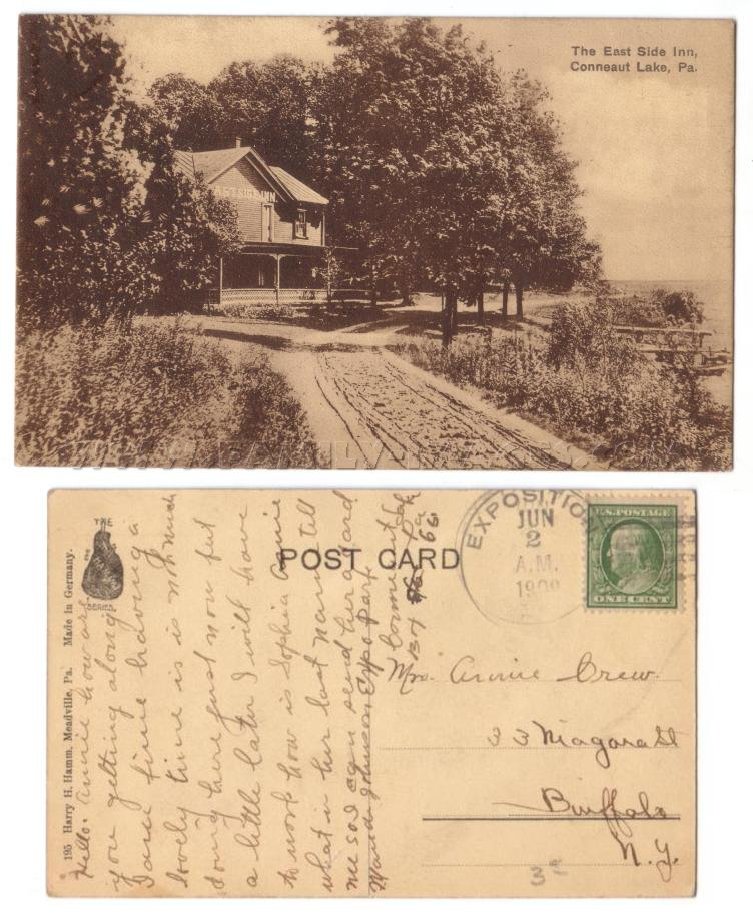 The East Side Inn,
Conneaut Lake, Pa.
EAST SIDE INN
WWW.FAMILY-IMAGES.COM
THE
SERIES.
POST CARD
EXPOSITION
JUN
2
A.M.
1909
U.S. POSTAGE
ONE CENT
195 Harry H. Hamm, Meadville, Pa. Made in Germany.
Hello. Annie how are
you getting along
I am fine having a
lovely time is is not much
doing here just now but
a little later I will have
to work how is Sophia Annie
what is her last name tell
me so I can send her a card
Maud Johnson Expo Park
Conneaut Lake
Box 66 Pa
Mrs. Annie Crew.
33 Niagara St
Buffalo
N.Y.
3